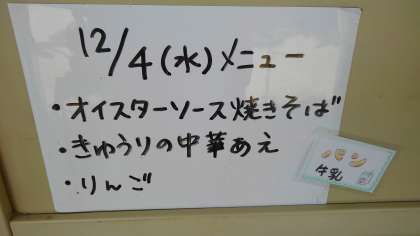 12/4(水)メニュー
・オイスターソース焼きそば
・きゅうりの中華あえ
・りんご
パン
牛乳